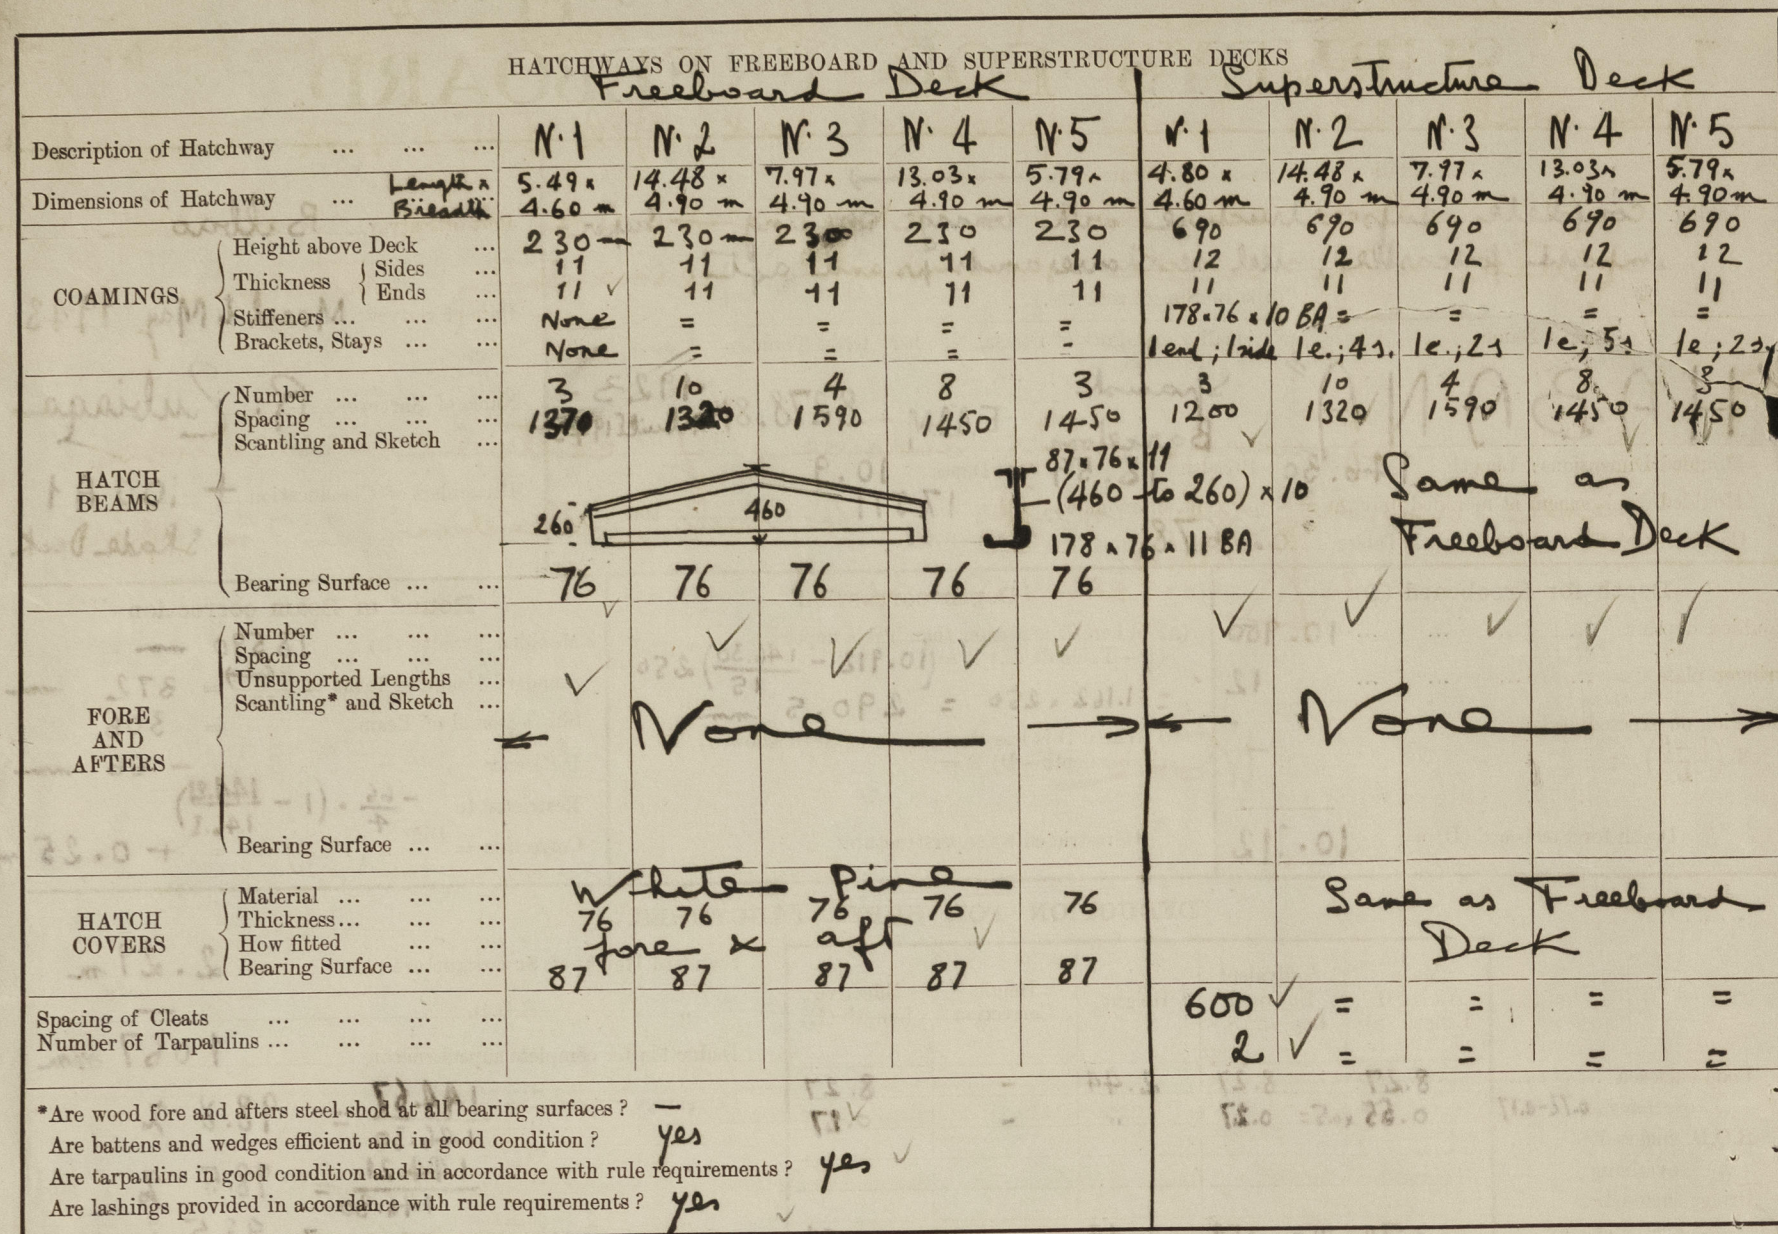 HATCHWAYS ON FREEBOARD AND SUPERSTRUCTURE DECKS
Freeboard Deck Superstructure Deck
Description of Hatchway ... ... ... N. 1 N. 2 N. 3 N. 4 N. 5 N. 1 N. 2 N. 3 N. 4 N. 5
Length x 5.49 x 14.48 x 7.97 x 13.03 x 5.79 x 4.80 x 14.48 x 7.97 x 13.03 x 5.79 x
Dimensions of Hatchway ... Breadth 4.60 m 4.90 m 4.90 m 4.90 m 4.90 m 4.60 m 4.90 m 4.90 m 4.90 m 4.90 m
COAMINGS
Height above Deck ... 230 230 230 230 230 690 690 690 690 690
Thickness Sides ... 11 11 11 11 11 12 12 12 12 12
Ends ... 11 ✓ 11 11 11 11 11 11 11 11 11
Stiffeners ... ... ... None = = = = 178 x 76 x 10 BA = = = =
Brackets, Stays ... ... None = = = - 1 end ; 1 side 1e. ; 4s. 1e. ; 2s 1e ; 5s 1e ; 2s
HATCH BEAMS
Number ... ... ... 3 10 4 8 3 3 10 4 8 3
Spacing ... ... ... 1370 1320 1590 1450 1450 1200 1320 1590 1450 1450
Scantling and Sketch ...
260 460
87 x 76 x 11
(460 to 260) x 10
178 x 76 x 11 BA
Same as
Freeboard Deck
Bearing Surface ... ... 76 76 76 76 76
FORE AND AFTERS
Number ... ... ...
Spacing ... ... ...
Unsupported Lengths ...
Scantling* and Sketch ...
None None
Bearing Surface ... ...
HATCH COVERS
Material ... ... ... White Pine
Thickness ... ... ... 76 76 76 76 76
How fitted ... ... fore & aft
Bearing Surface ... ... 87 87 87 87 87
Same as Freeboard
Deck
Spacing of Cleats ... ... ... ... 600 ✓ = = = =
Number of Tarpaulins ... ... ... ... 2 ✓ = = = =
*Are wood fore and afters steel shod at all bearing surfaces ? —
Are battens and wedges efficient and in good condition ? yes
Are tarpaulins in good condition and in accordance with rule requirements ? yes ✓
Are lashings provided in accordance with rule requirements ? yes ✓